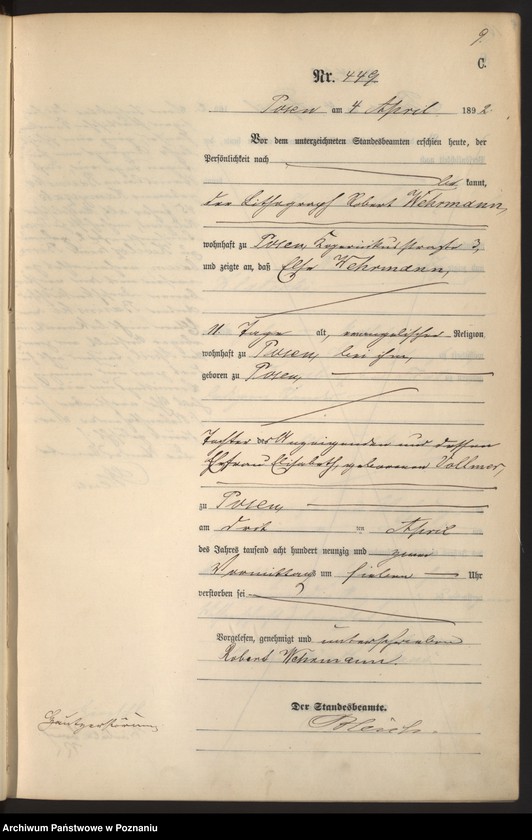 9.
C.
Nr. 449
Posen am 4 April 1892
Vor dem unterzeichneten Standesbeamten erschien heute, der
Persönlichkeit nach
be kannt,
der Lithograph Robert Wehrmann,
wohnhaft zu Posen, Kopernikusstraße 3,
und zeigte an, daß Else Wehrmann,
11 Tage alt, evangelischer Religion,
wohnhaft zu Posen, bei ihm,
geboren zu Posen,
Tochter des Anzeigenden und dessen
Ehefrau Elisabeth, geborenen Vollmer,
zu Posen,
am drit ten April
des Jahres tausend acht hundert neunzig und zwei
Vormittags um sieben Uhr
verstorben sei
Vorgelesen, genehmigt und unterschrieben
Robert Wehrmann.
Der Standesbeamte.
Archiwum Państwowe w Poznaniu